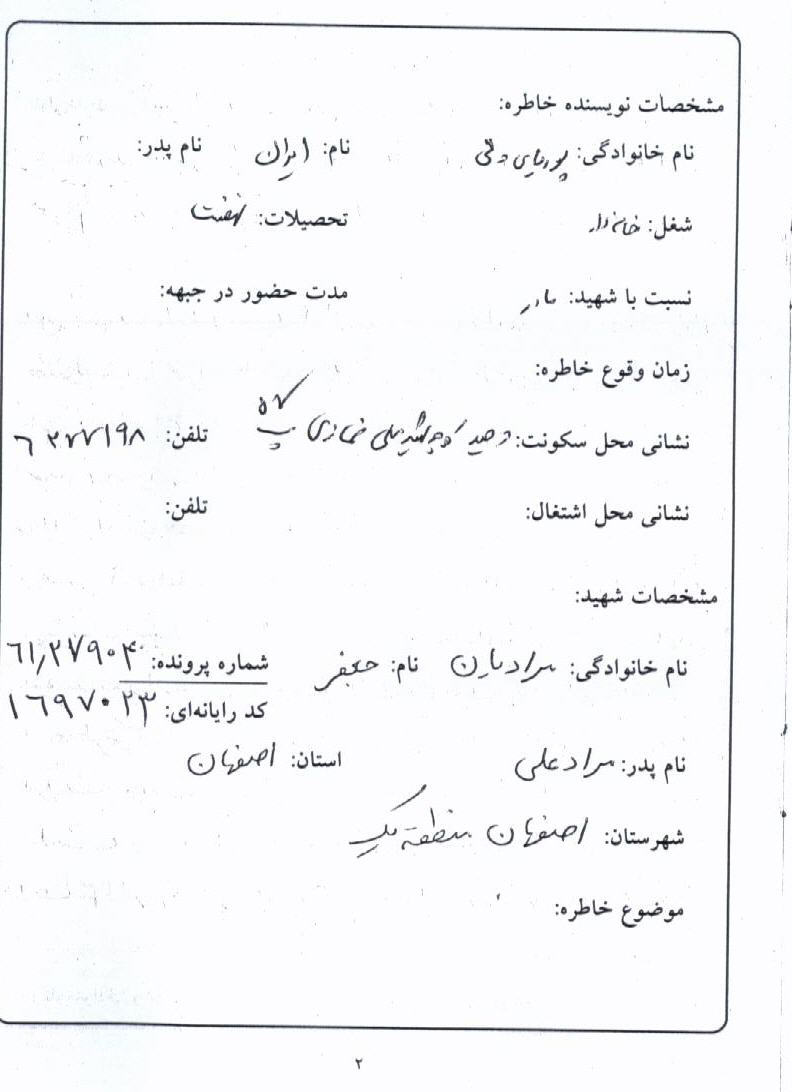 مشخصات نویسنده خاطره:
نام خانوادگی: پورنمای دقی نام: ایران نام پدر:
شغل: خانه‌دار تحصیلات: نهضت
نسبت با شهید: مادر مدت حضور در جبهه:
زمان وقوع خاطره:
نشانی محل سکونت: وحید کوچه شهید علی نمازی پ ۵۷ تلفن: ۶۲۷۷۱۹۸
نشانی محل اشتغال: تلفن:
مشخصات شهید:
نام خانوادگی: مرادیان نام: جعفر شماره پرونده: ۶۱٫۲۷۹۰۴
کد رایانه‌ای: ۱۶۹۷۰۲۳
نام پدر: مراد علی استان: اصفهان
شهرستان: اصفهان منطقه یک
موضوع خاطره:
۲